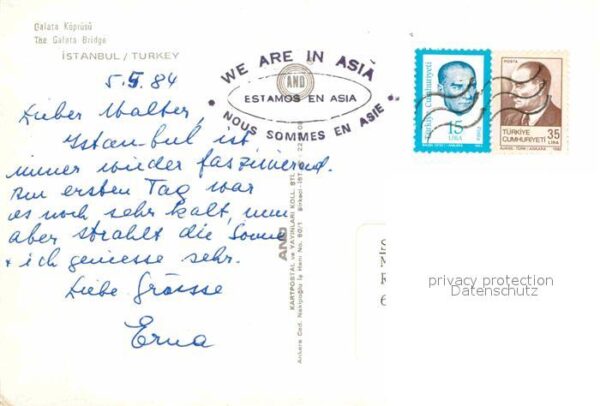 Galata Köprüsü
The Galata Bridge
İSTANBUL / TURKEY
5.5.84
Lieber Walter,
Istanbul ist
immer wieder faszinierend.
Am ersten Tag war
es noch sehr kalt, nun
aber strahlt die Sonne
+ ich geniesse sehr.
Liebe Grüsse
Erna
• WE ARE IN ASIA •
ESTAMOS EN ASIA
NOUS SOMMES EN ASIE
AND
AND
KARTPOSTAL ve YAYINLARI KOLL. ŞTİ.
Ankara Cad. Nakipoğlu İş Hanı No. 60/1
Türkiye Cumhuriyeti
15
LİRA
POSTA
TÜRKİYE
CUMHURİYETİ
35
LİRA
privacy protection
Datenschutz